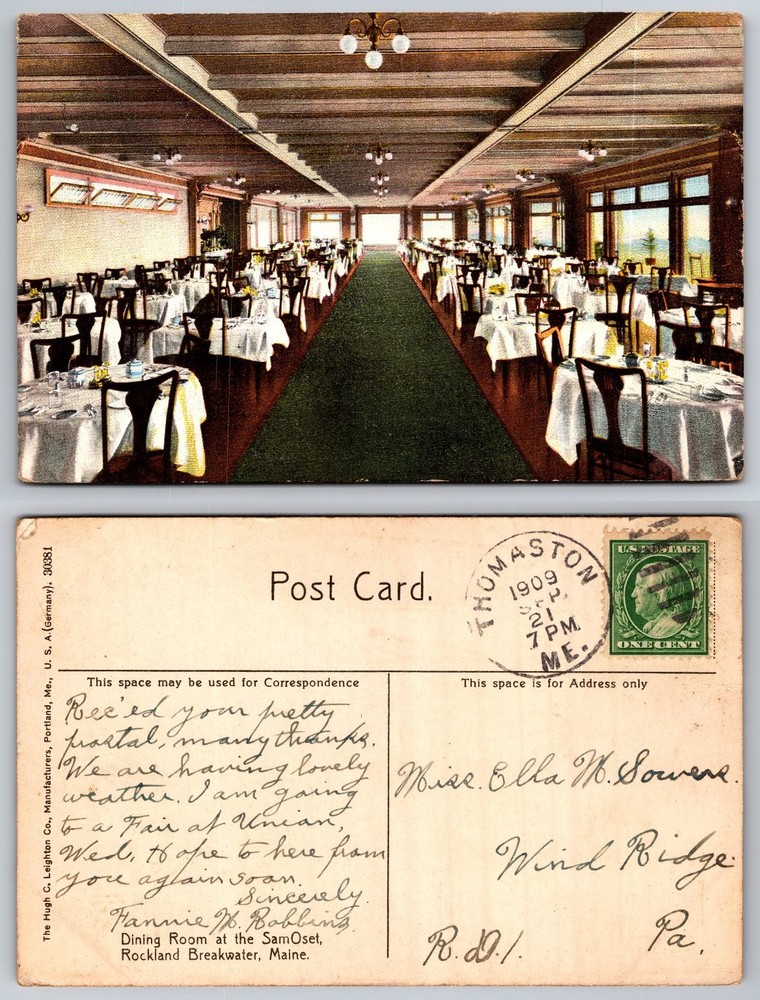 Post Card.
THOMASTON
1909
SEP.
21
7 PM.
ME.
U.S. POSTAGE
ONE CENT
The Hugh C. Leighton Co., Manufacturers, Portland, Me., U. S. A. (Germany). 30381
This space may be used for Correspondence
This space is for Address only
Rec'ed your pretty
postal, many thanks.
We are having lovely
weather. I am going
to a Fair at Union,
Wed. Hope to here from
you again soon.
Sincerely.
Fannie M. Robbins.
Dining Room at the SamOset,
Rockland Breakwater, Maine.
Miss. Ella M. Sowers.
Wind Ridge.
Pa.
R. D. 1.